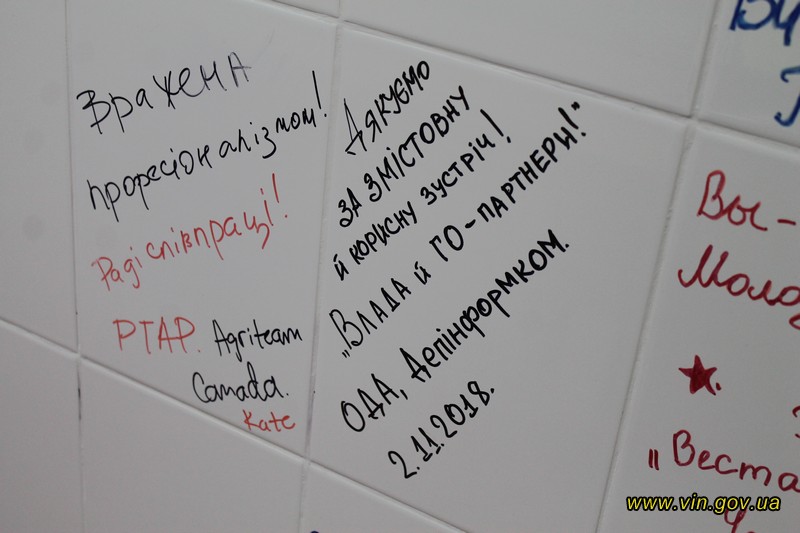 Вражена
професіоналізмом!
Раді співпраці!
PTAP. Agriteam
Canada.
Kate
Дякуємо
за змістовну
й корисну зустріч!
„Влада й ГО-партнери!"
ОДА, Депінформком.
2.11.2018.
Вы-
Моло
„Веста
www.vin.gov.ua